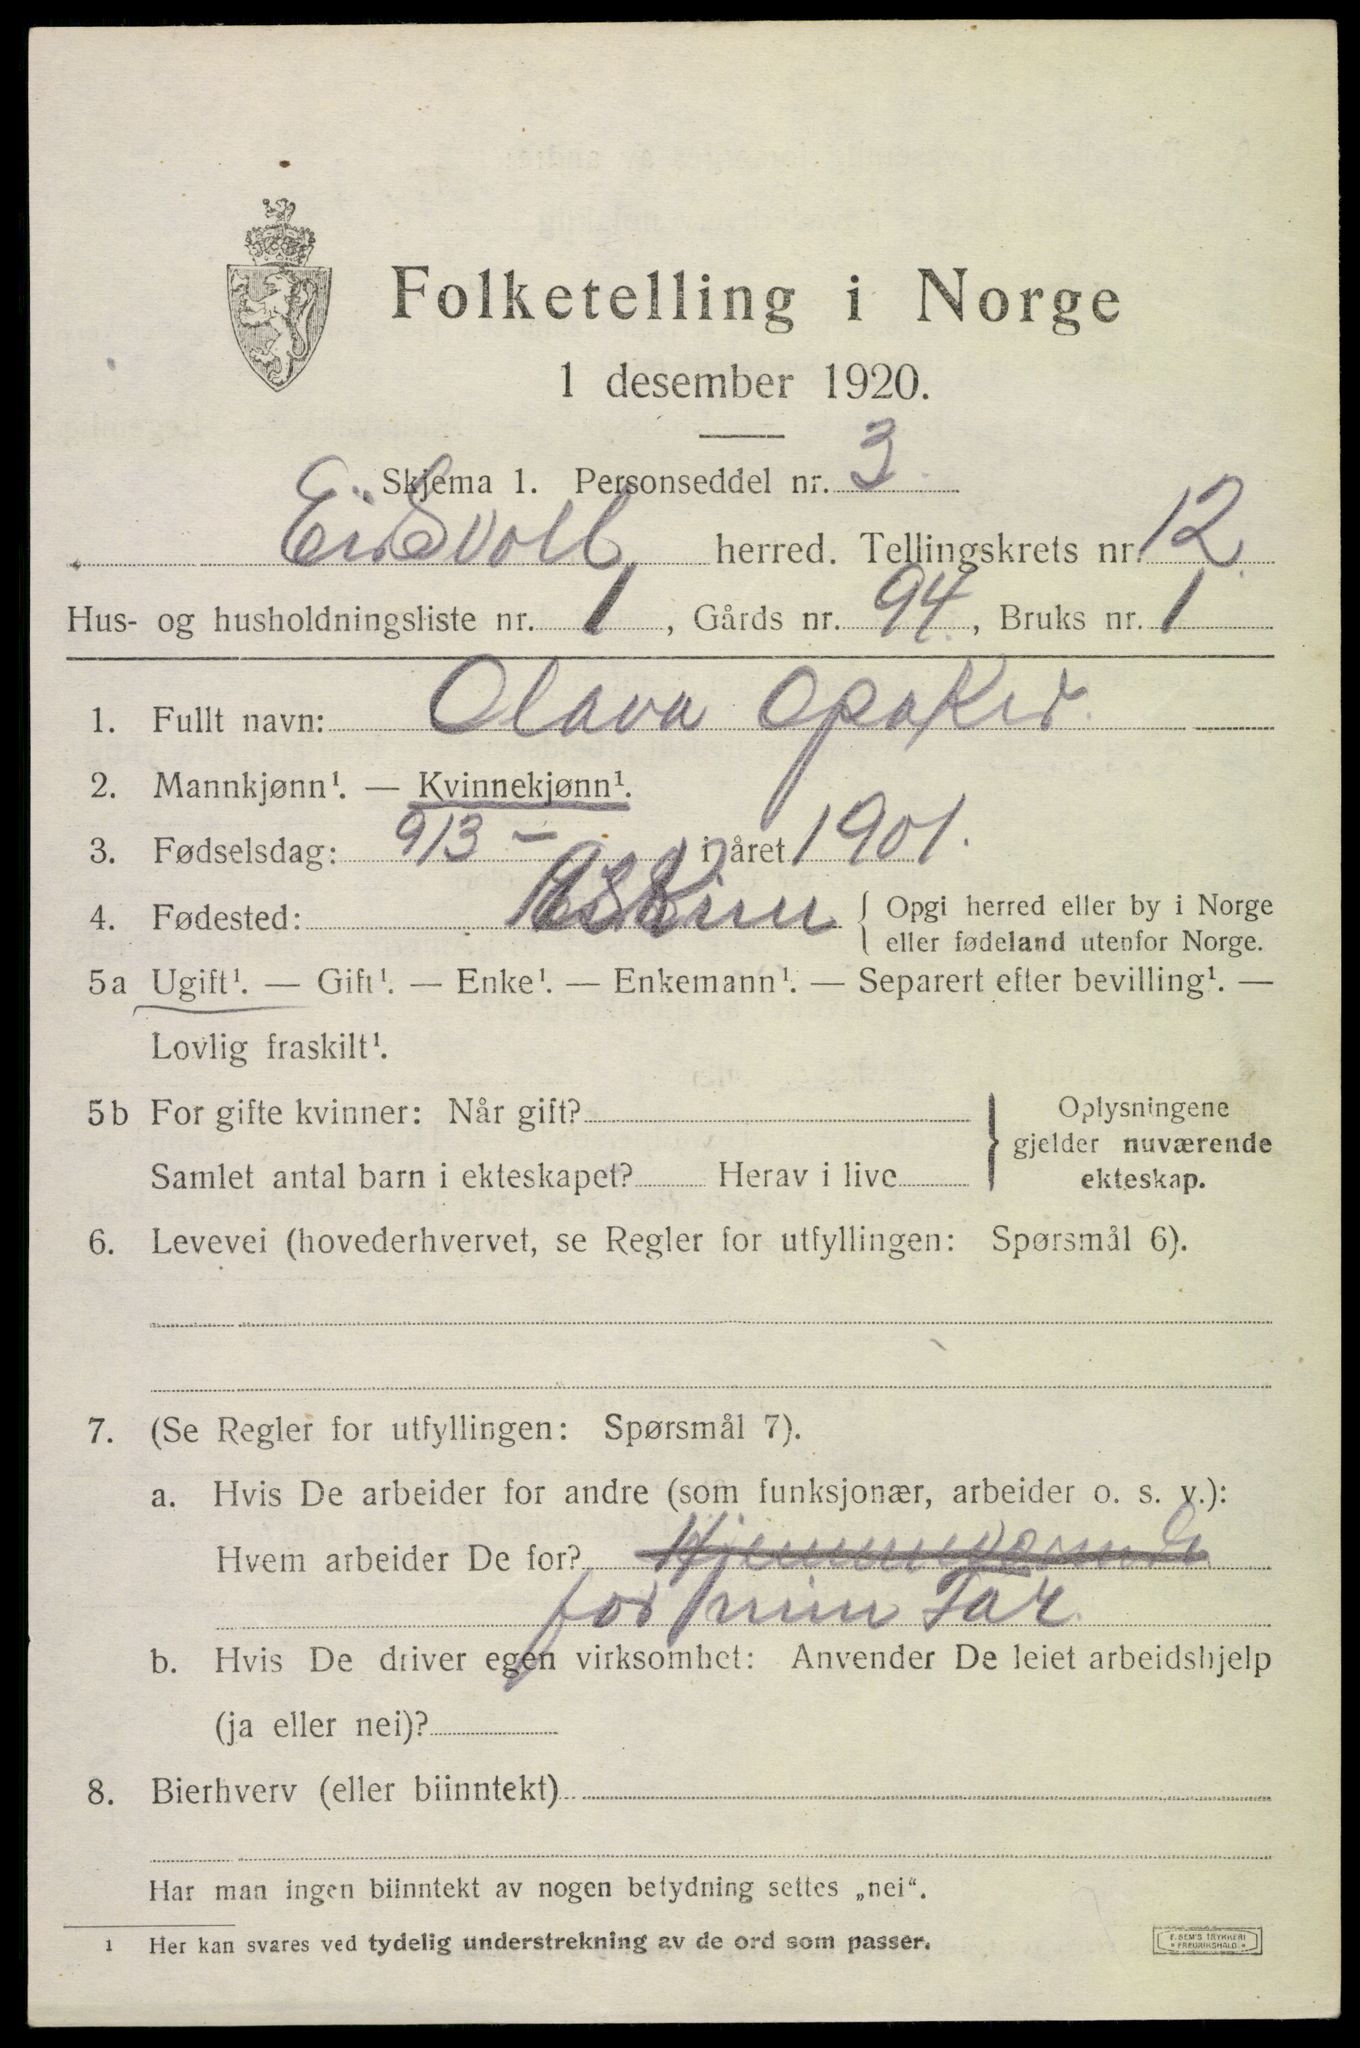 Folketelling i Norge
1 desember 1920.
Skjema 1. Personseddel nr. 3.
Eidsvoll herred. Tellingskrets nr. 12.
Hus- og husholdningsliste nr. 1, Gårds nr. 94., Bruks nr. 1
1. Fullt navn: Olava Opaker.
2. Mannkjønn¹. — Kvinnekjønn¹.
3. Fødselsdag: 9/3 – i året 1901.
4. Fødested: Askim { Opgi herred eller by i Norge
eller fødeland utenfor Norge.
5a Ugift¹. — Gift¹. — Enke¹. — Enkemann¹. — Separert efter bevilling¹. —
Lovlig fraskilt¹.
5b For gifte kvinner: Når gift?
Samlet antal barn i ekteskapet? Herav i live
} Oplysningene
gjelder nuværende
ekteskap.
6. Levevei (hovederhvervet, se Regler for utfyllingen: Spørsmål 6).
7. (Se Regler for utfyllingen: Spørsmål 7).
a. Hvis De arbeider for andre (som funksjonær, arbeider o. s. v.):
Hvem arbeider De for? Hjemmeværende
for min Far.
b. Hvis De driver egen virksomhet: Anvender De leiet arbeidshjelp
(ja eller nei)?
8. Bierhverv (eller biinntekt)
Har man ingen biinntekt av nogen betydning settes „nei“.
¹ Her kan svares ved tydelig understrekning av de ord som passer.
F. SEM'S TRYKKERI
* FREDRIKSHALD *